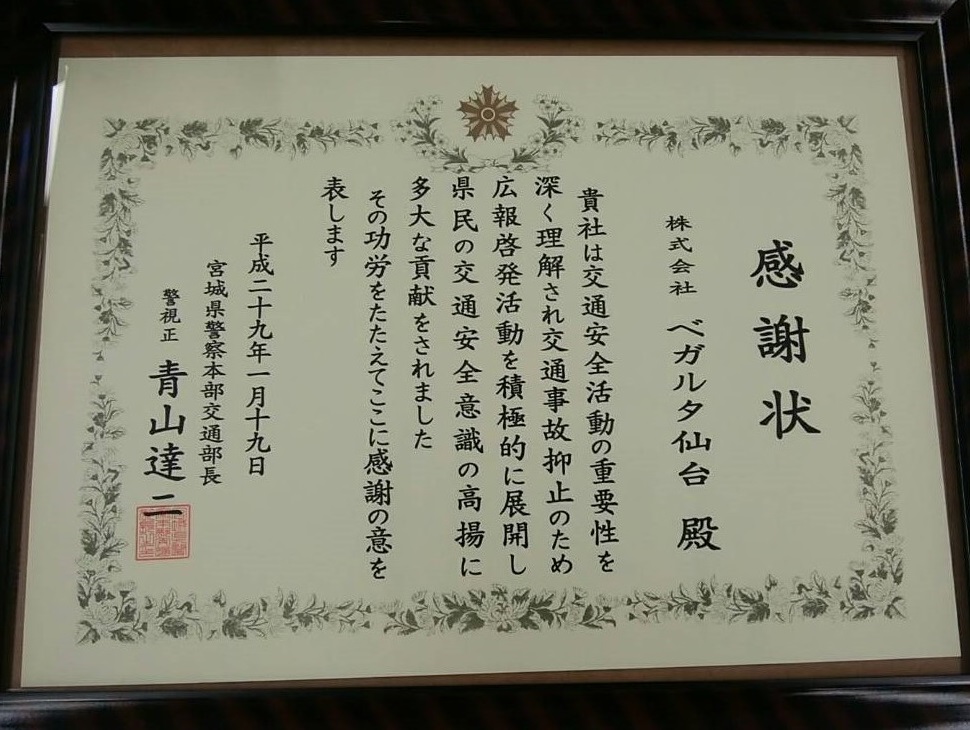 感謝状
株式会社 ベガルタ仙台 殿
貴社は交通安全活動の重要性を
深く理解され交通事故抑止のため
広報啓発活動を積極的に展開し
県民の交通安全意識の高揚に
多大な貢献をされました
その功労をたたえてここに感謝の意を
表します
平成二十九年一月十九日
宮城県警察本部交通部長
警視正 青山達二